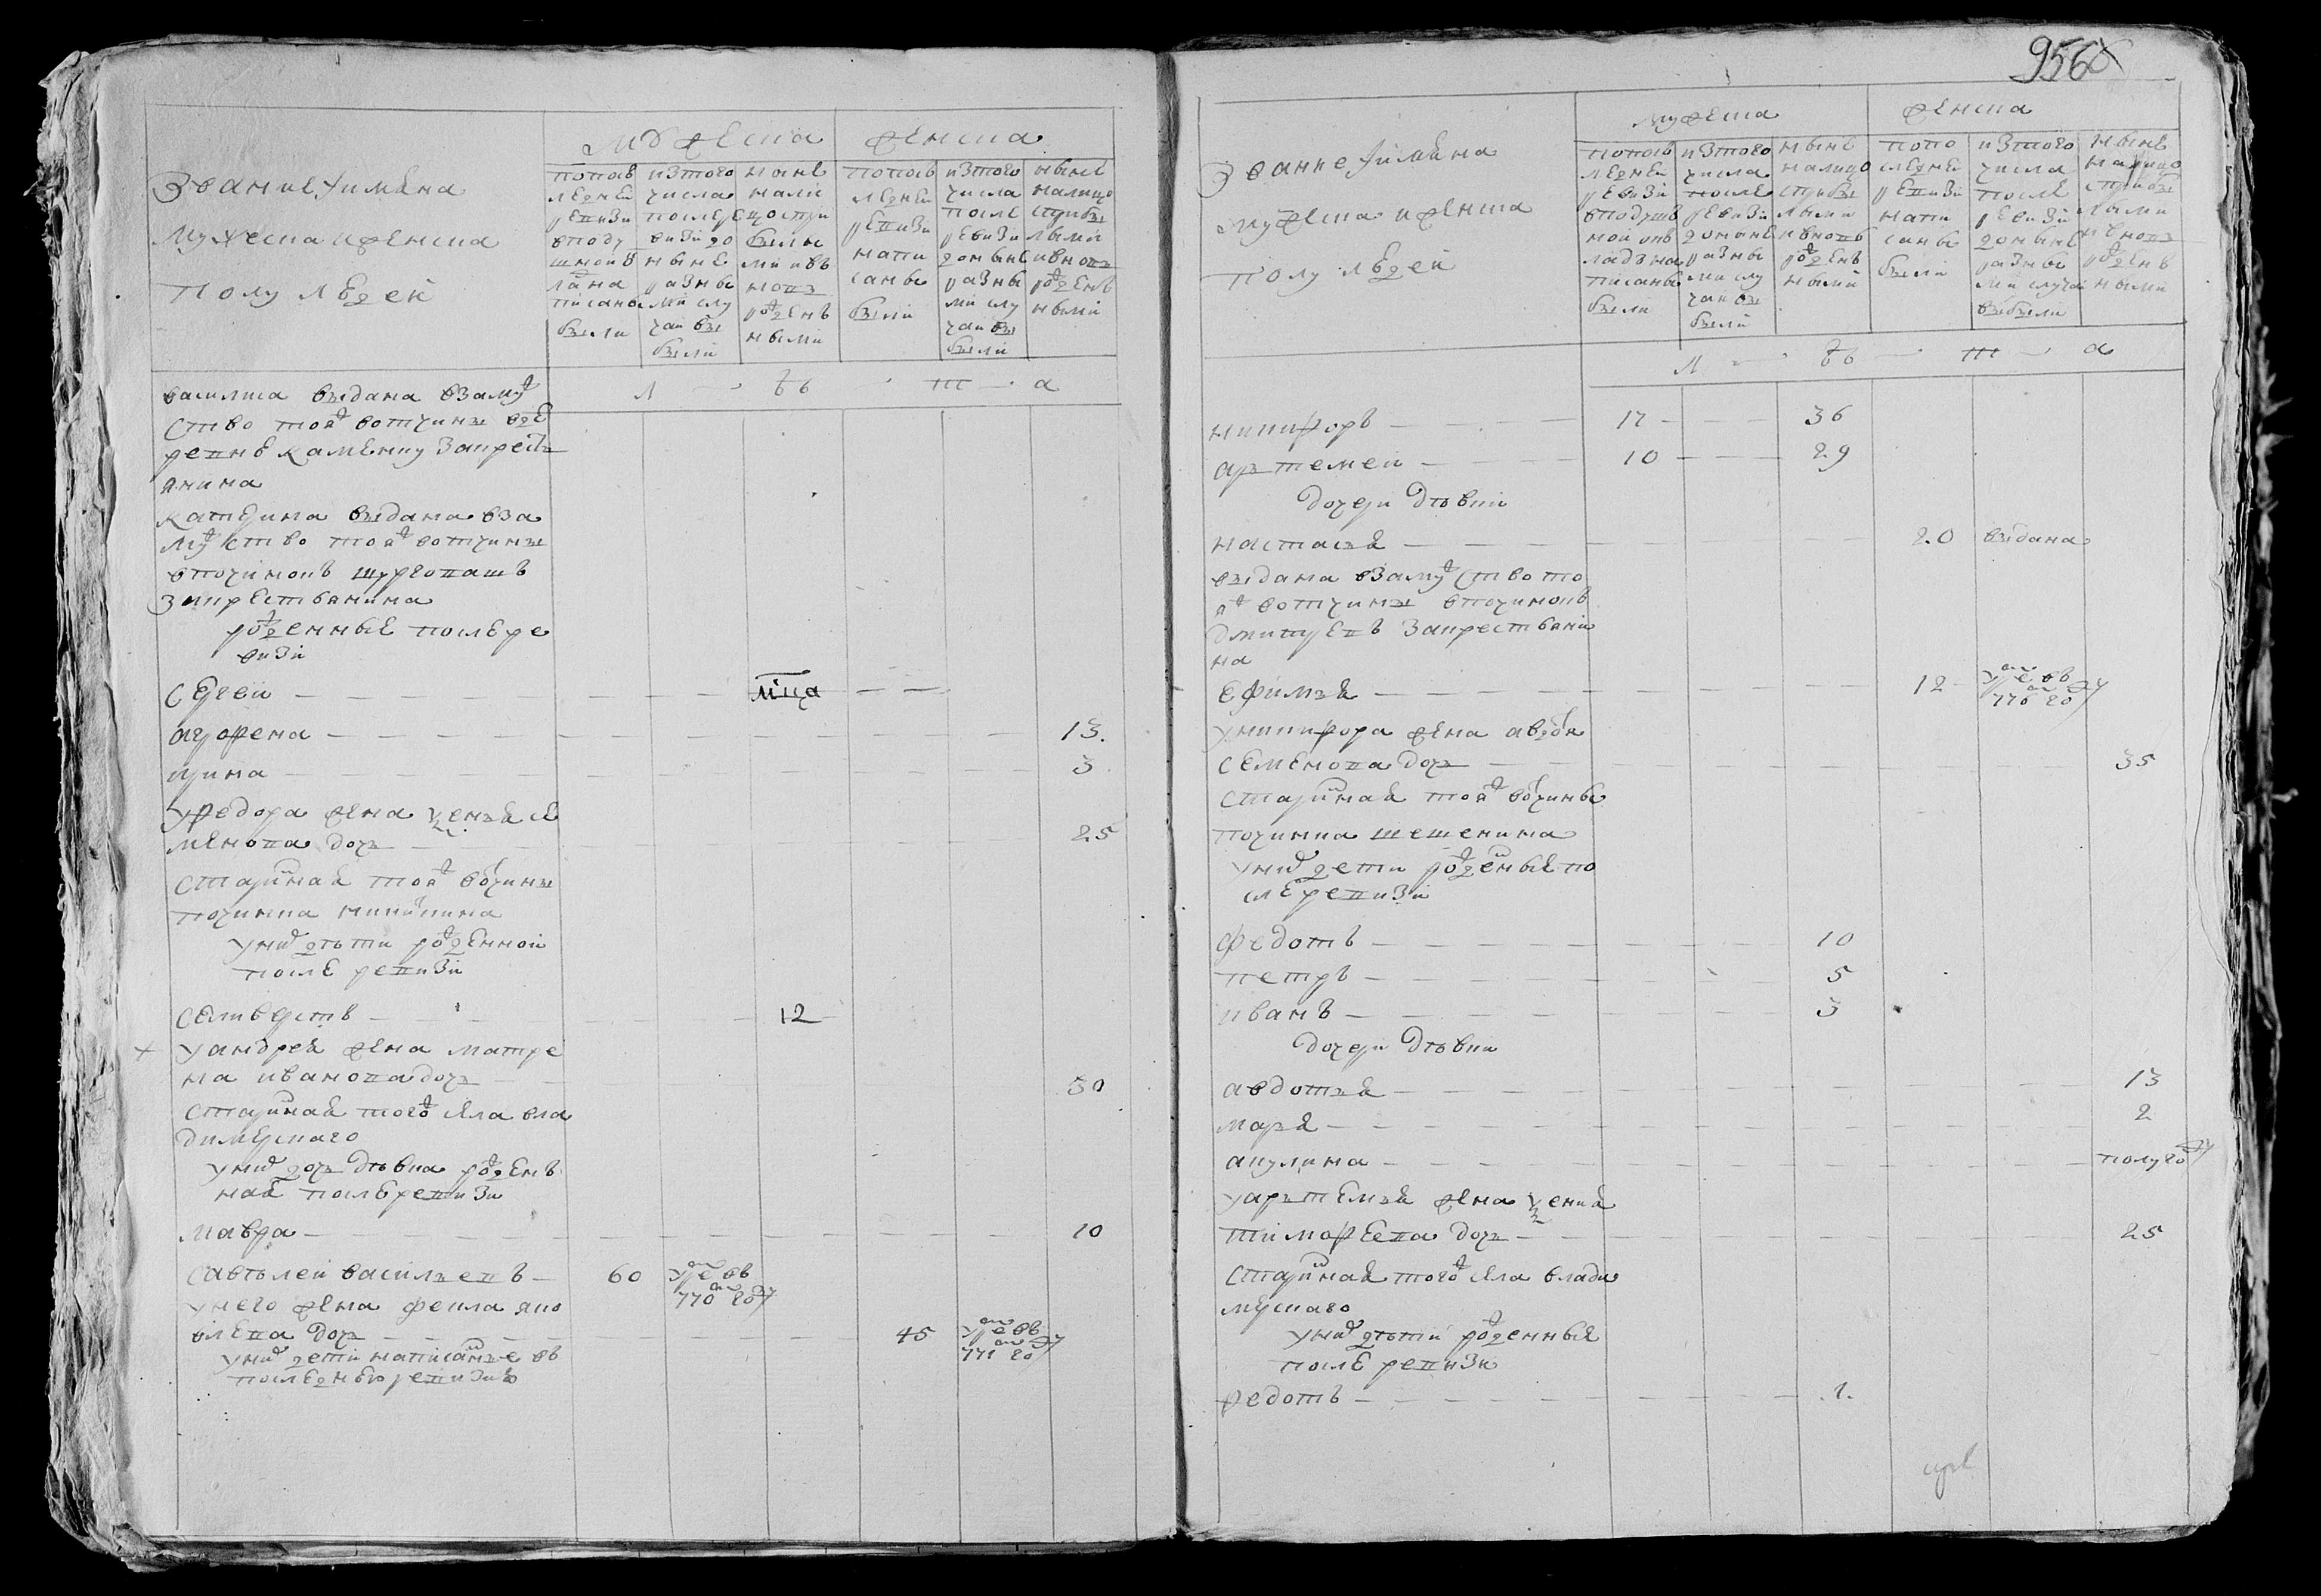 Звание имяна
мужеска и женска
полу людей
мужеска
женска
по пос
ледней
ревизи
в поду
шной о
кла на
писано
были
из того
числа
после ре
визи до
ныне
разны
ми слу
чаи вы
были
ныне
нали
цо с при
былы
ми и въ
новъ
рожденъ
ными
по пос
ледней
ревизи
напи
саны
были
из того
числа
после
ревизи
до ныне
разны
ми слу
чаи вы
были
ныне
налицо
с прибы
лыми
и вновъ
рожденъ
ными
л — ѣ — т — а
василиса выдана в замуж
ство той ж вотчины в де
ревню каменку за кресть
янина
катерина выдана в за
муж ство той ж вотчины
в починокъ
за крестьянина
рожденные после ре
визи
сергеи — мца
агрофена — 13
ирина — 3
у федора жена ксенья се
менова дочь — 25
старинная той ж вотчины
починка никишкина
у них дети рожденной
после ревизи
селиверстъ — 12
у андрея жена матре
на иванова дочь — 30
старинная того ж села вла
димерскаго
у них дочь девка рожденъ
ная после ревизи
мавра — 10
савелей васильевъ — 60 умре въ
770 году
у него жена фекла яко
влева дочь — 45 умре въ
771 году
у них дети написанные въ
последнею ревизию
956
Звание имяна
мужеска и женска
полу людей
мужеска
женска
по пос
ледней
ревизи
в подуш
ной ок
лад на
писаны
были
из того
числа
после
ревизи
до ныне
разны
ми слу
чаи вы
были
ныне
налицо
с прибы
лыми
и вновь
рожденъ
ными
по по
следней
ревизи
напи
саны
были
из того
числа
после
ревизи
до ныне
разны
ми случаи
выбыли
ныне
налицо
с прибы
лыми
и вновъ
рожденъ
ными
л — ѣ — т — а
никифоръ — 17 — 36
артемей — 10 — 29
дочери девки
настасья — 20 выдана
выдана в замуж ство то
й ж вотчины в починокъ
за крестьяни
на
ефимья — 12 умре въ
776 году
у никифора жена авдотья
семенова дочь — 35
старинная той ж вотчины
починка шешенина
у них дети рожденные по
сле ревизи
федотъ — 10
петръ — 5
иванъ — 3
дочери девки
авдотья — 13
марья — 2
акулина — полугоду
у артемья жена ксенья
тимофеева дочь — 25
старинная того ж села влади
мерскаго
у них дети рожденные
после ревизи
федотъ — 1